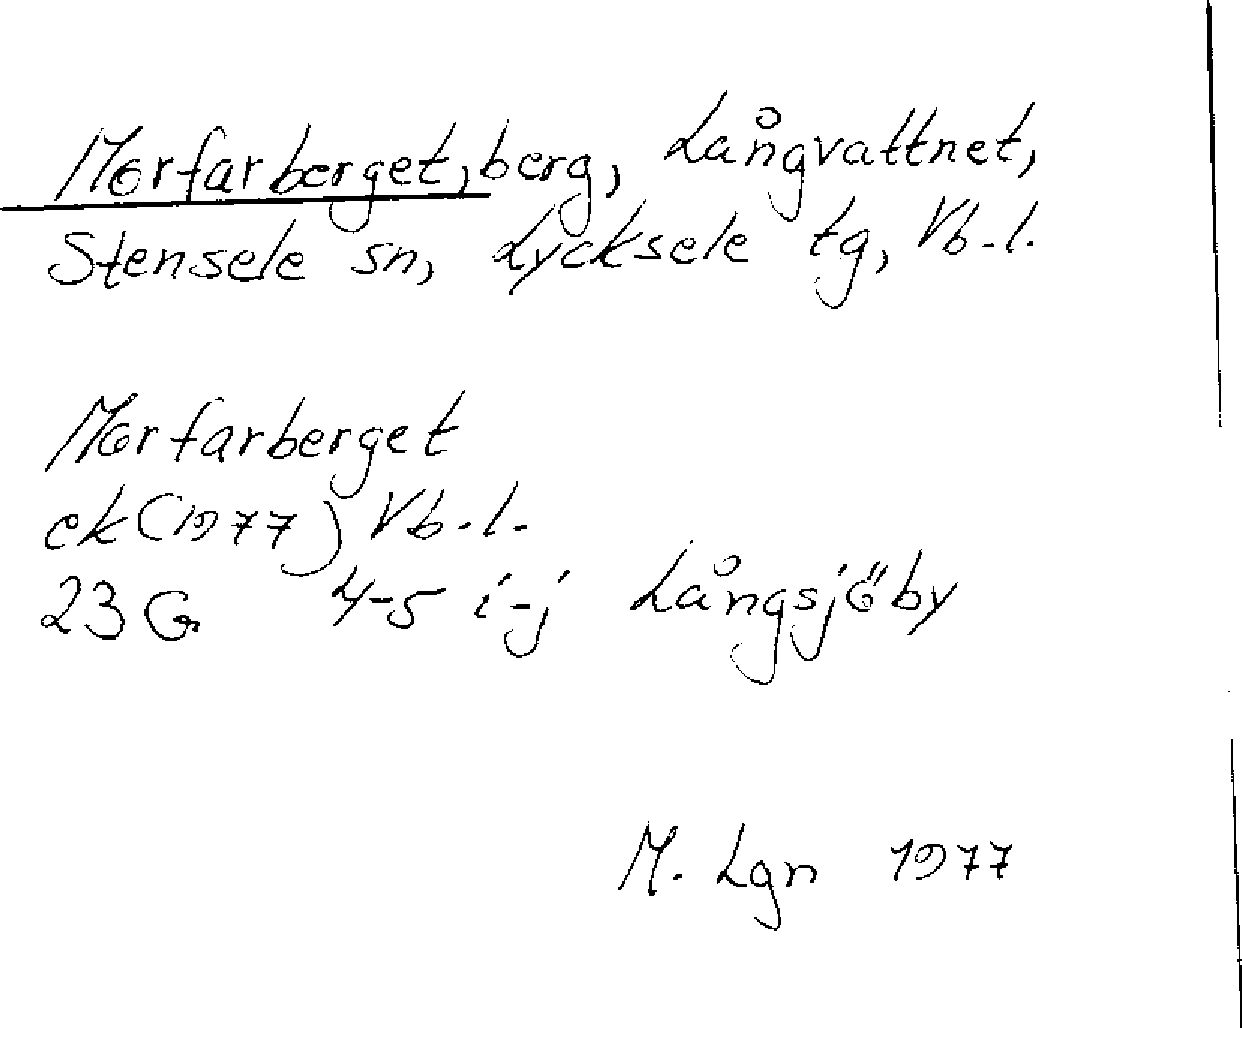 Morfarberget, berg, Långvattnet,
Stensele sn, Lycksele tg, Vb-l.
Morfarberget
ek (1977) Vb-l.
23 G 4-5 i-j Långsjöby
M. Lgn 1977